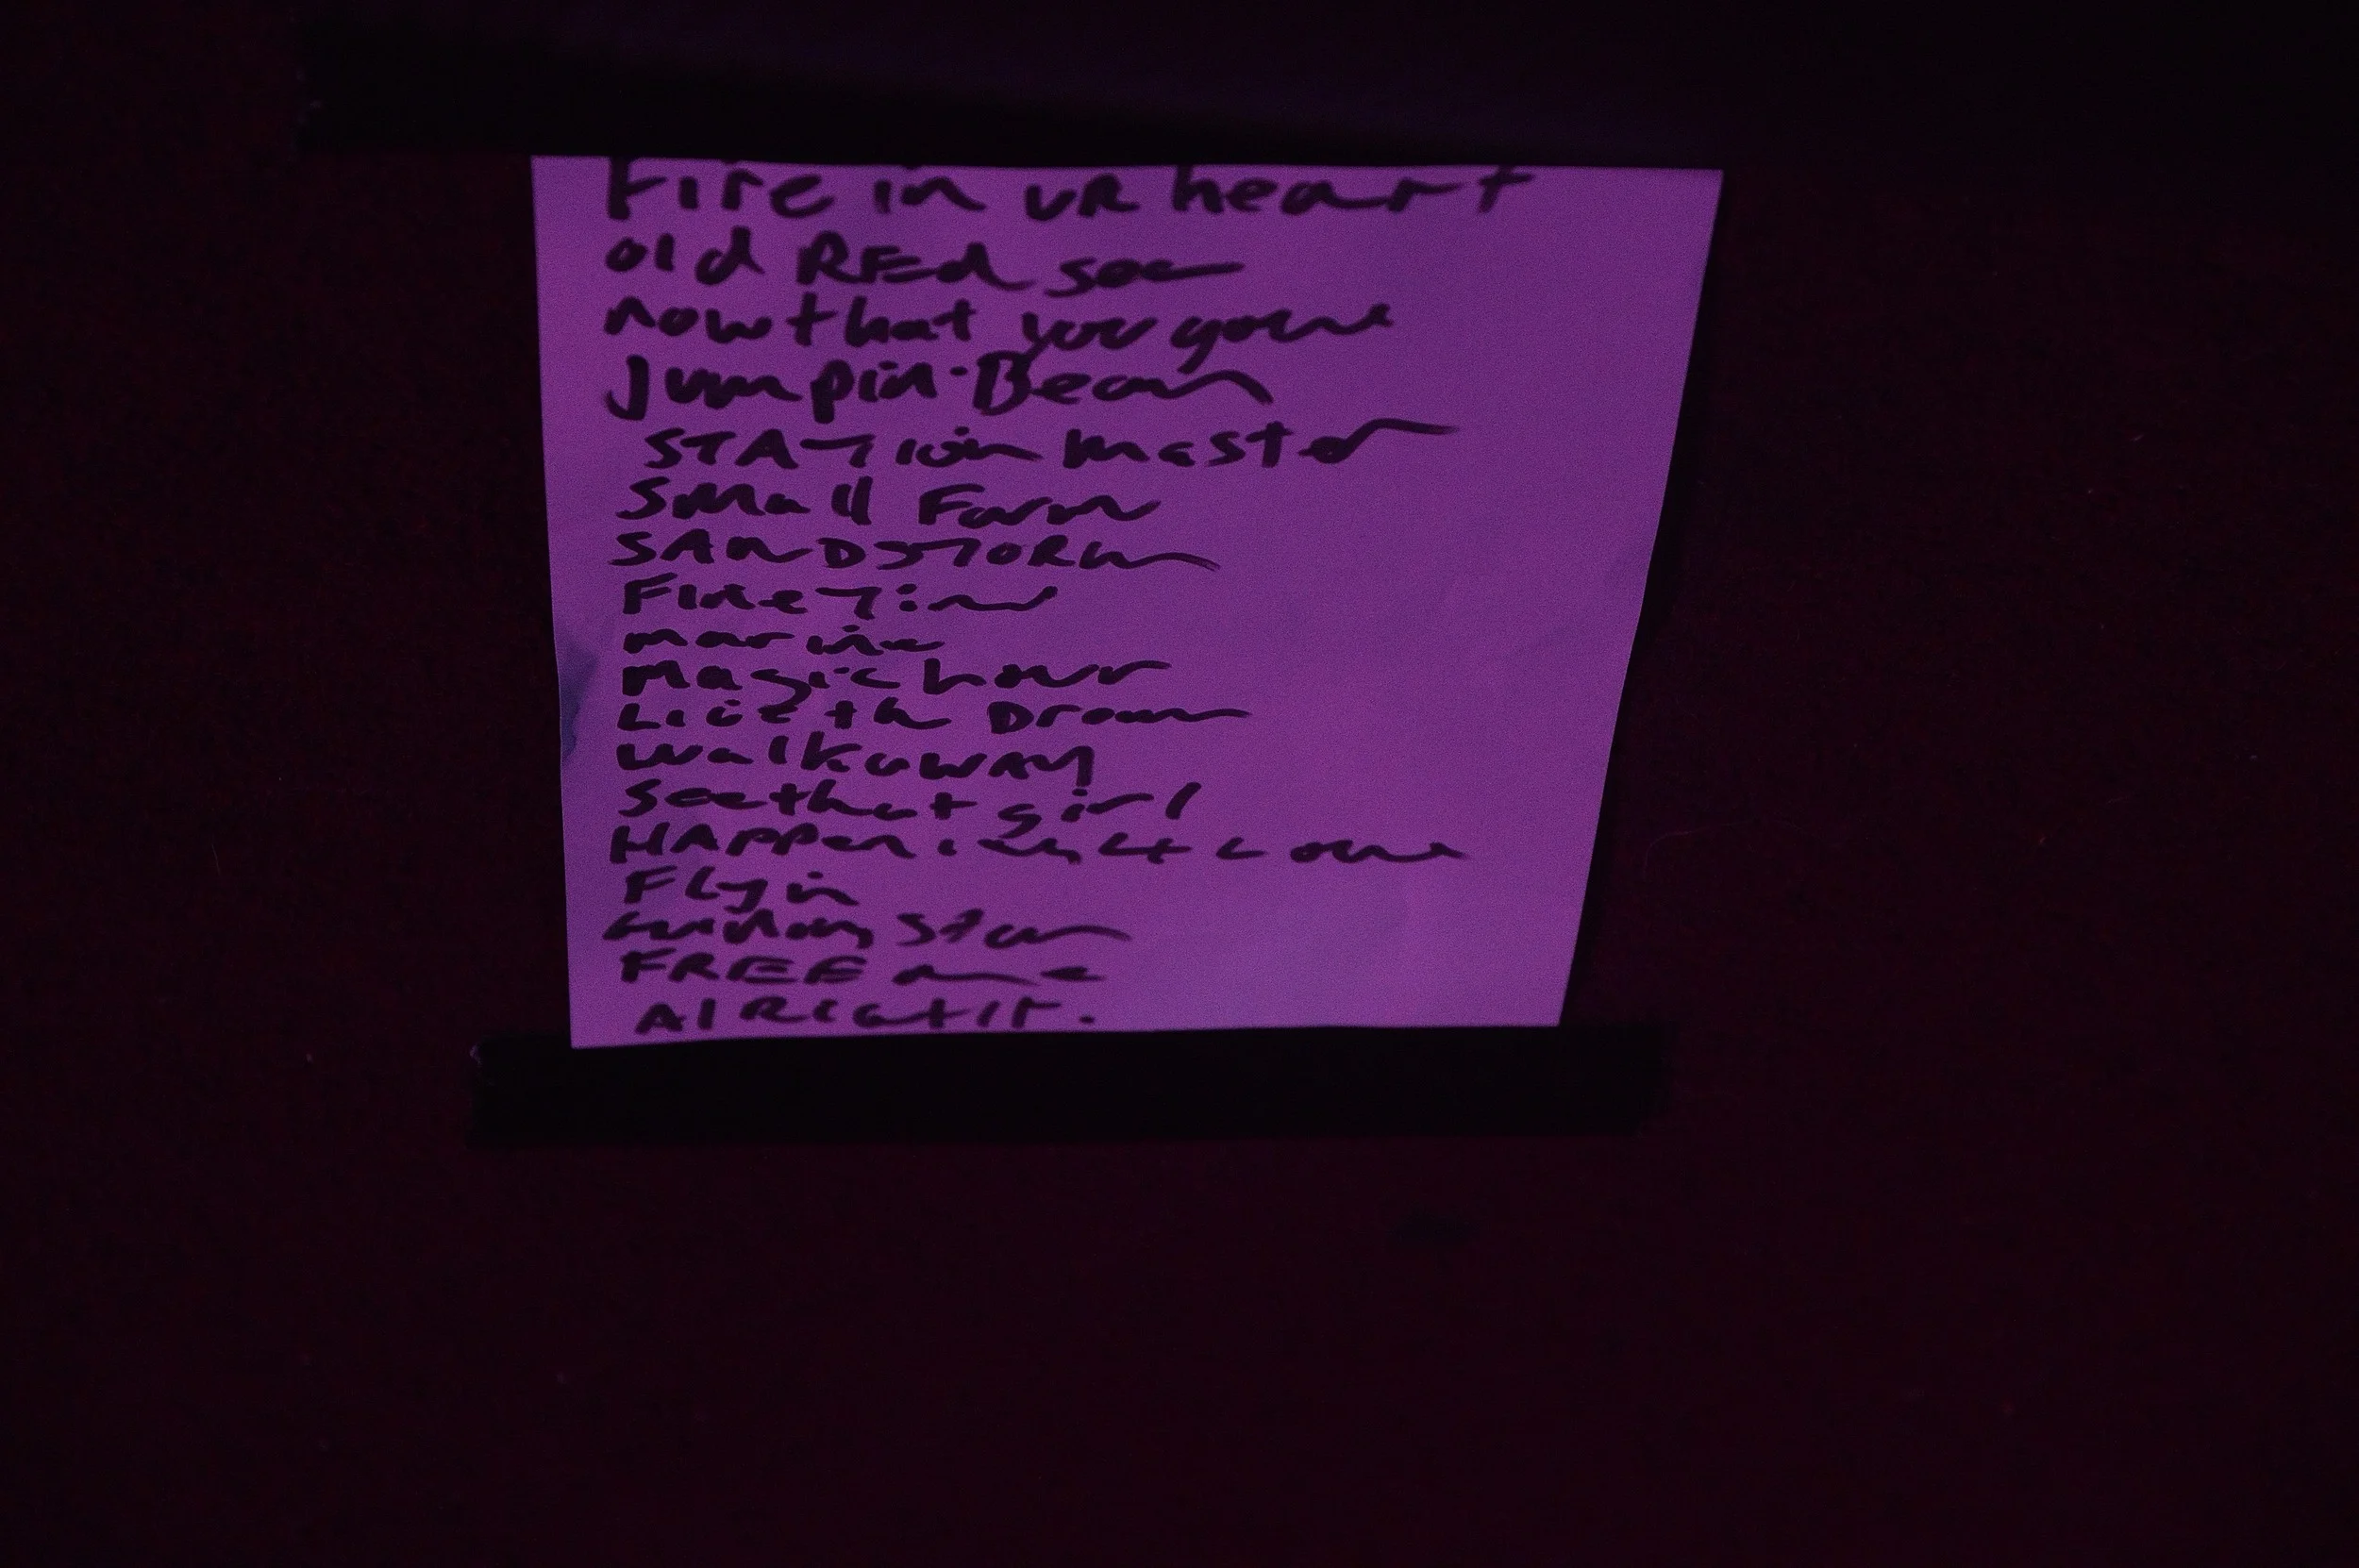 Fire in UR heart
old REd sea
now that you gone
Jumpin Bean
STATION master
Small Farm
SANDSTORM
Fire
marine
magic hour
Dream
walkaway
see that girl
Flyin
Star
FREE me
AlRight.